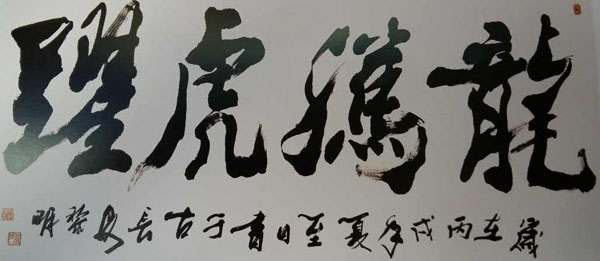 龍騰虎躍
歲在丙戌年夏至日書于古長安黎明